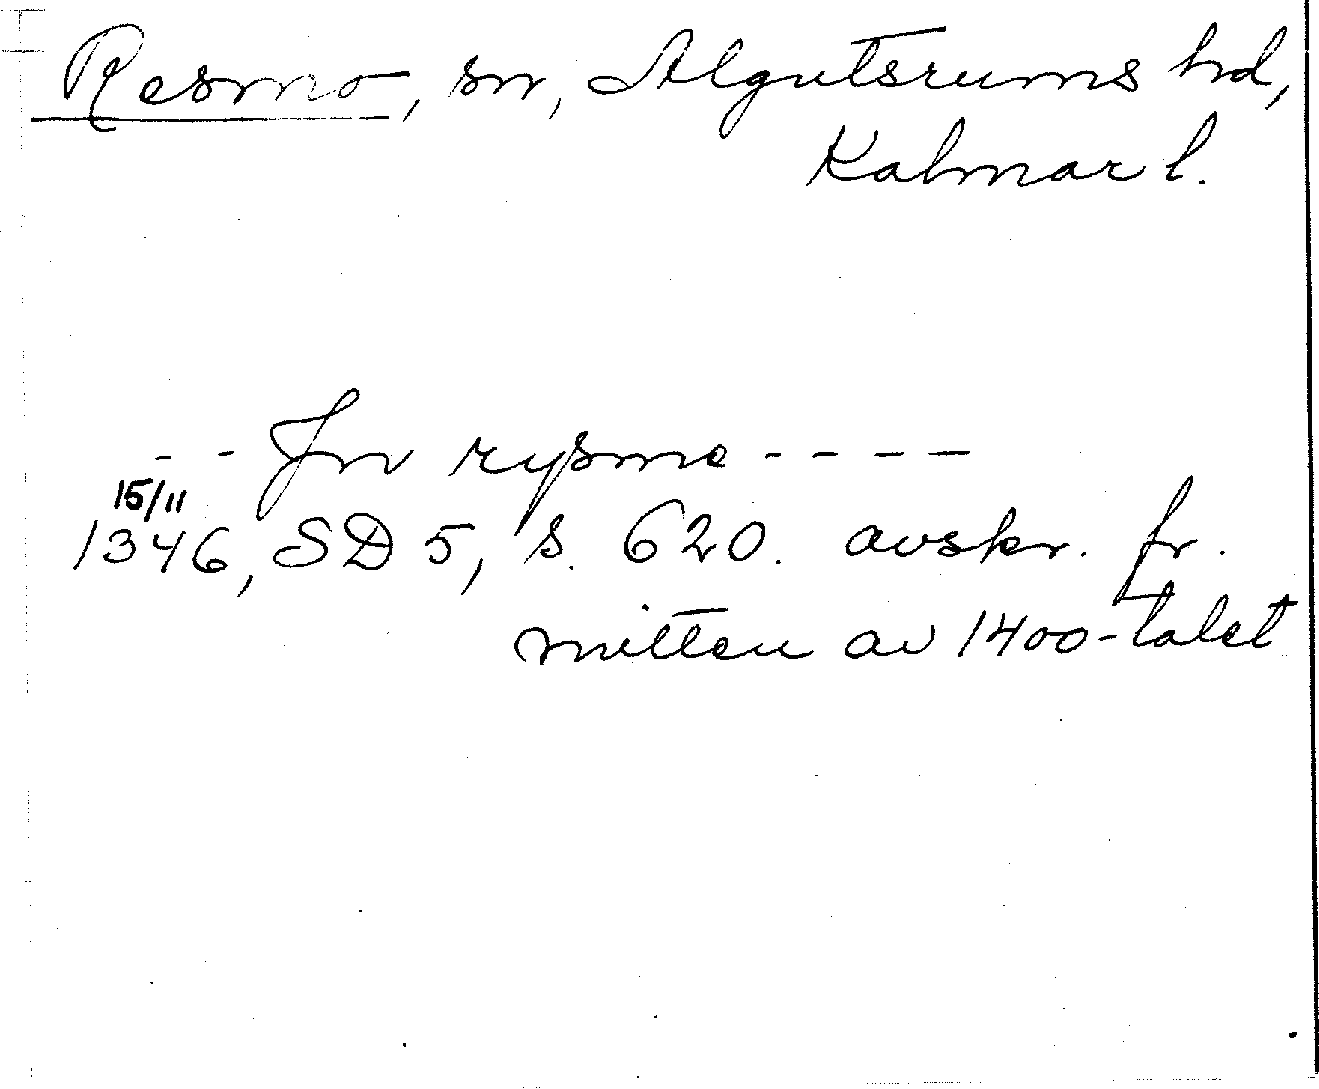 Resmo, sn, Algutsrums hd,
Kalmar l.
- - Jn rysmo - - - -
15/11
1346, SD 5, s. 620. avskr. fr.
mitten av 1400-talet